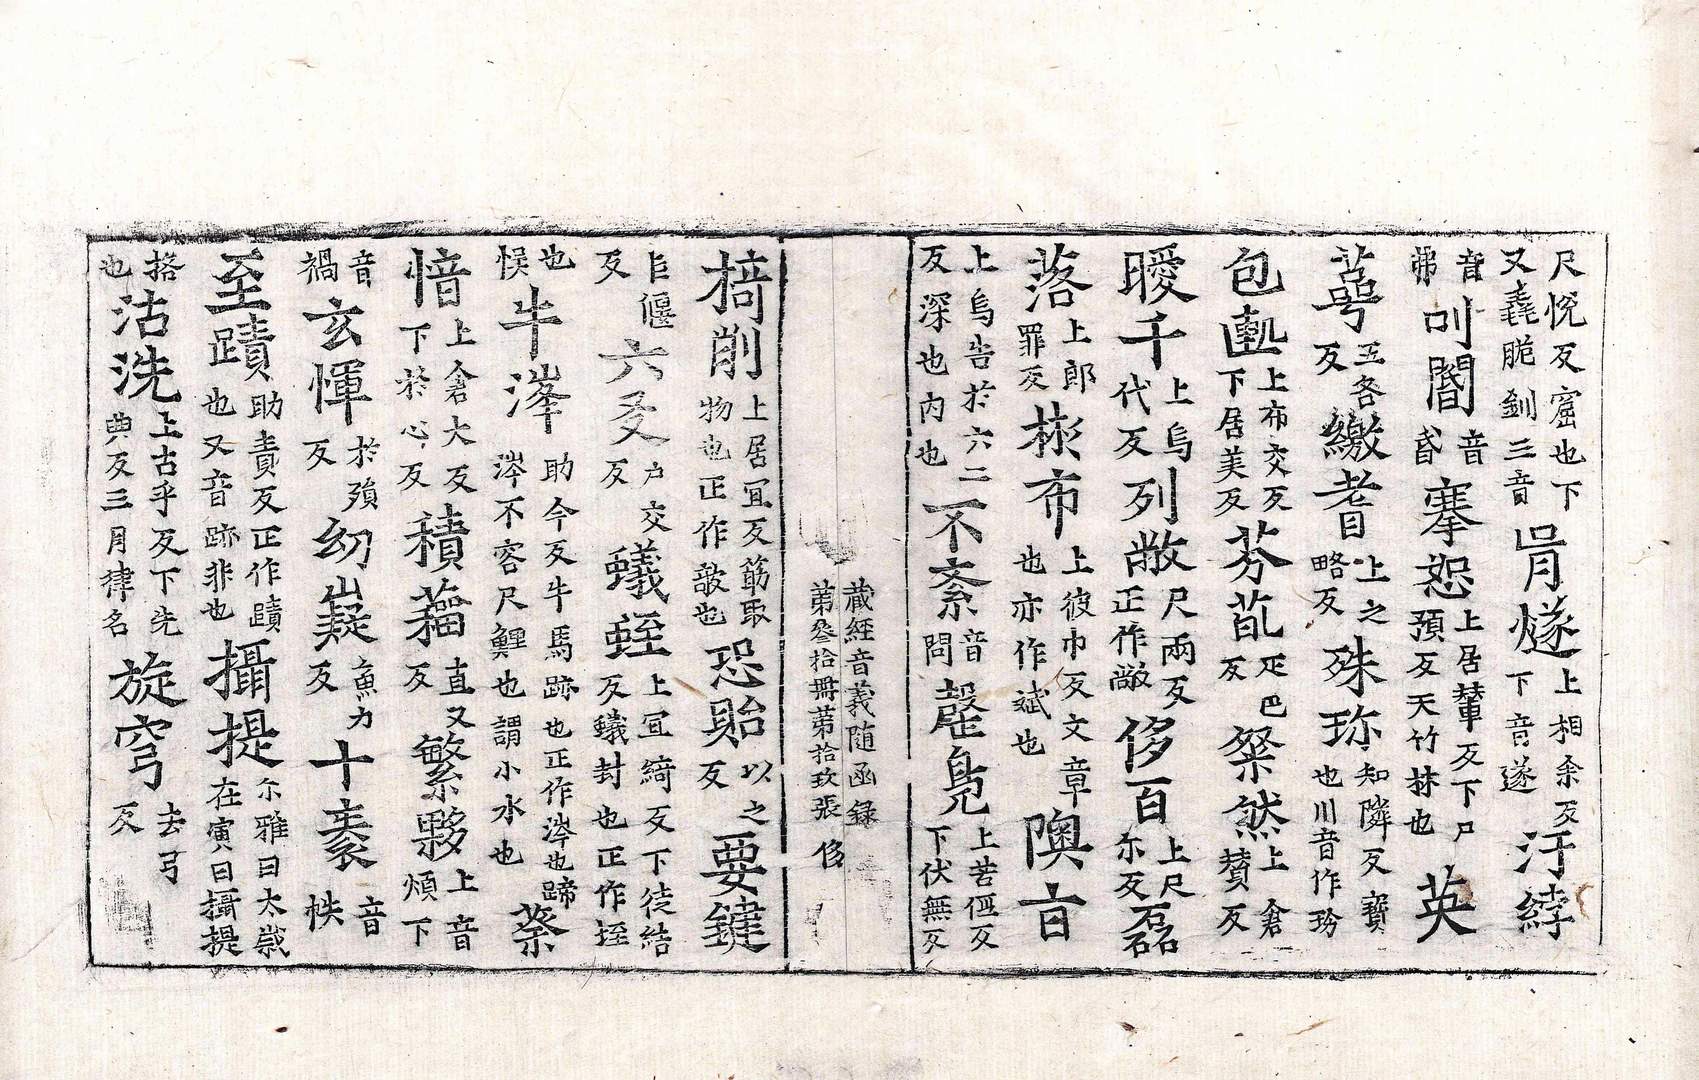 尺悅反窟也下又毳脆釧三音𦙍燧上相余反下音遂汙綍
音弗叫閽音昏搴恕上居輦反下尸預反天竹抹也英
萼五各反繳耆上之略反殊珎知隣反寶也川音作珎
包匭上布交反下居美反芬芭疋巴反粲然上倉贊反
曖千上烏代反列敞尺兩反正作敞侈百上尺尔反磊
落上郎罪反彬布上彼巾反文章也亦作斌也隩
上烏告於六二反深也內也不紊音問罄鳧上苦俓反下伏無反
藏經音義随函録
第叄拾冊第拾玖張 侈
掎削上居宜反筋取物也正作敧也恐貽以之反要鍵
巨偃反六爻户交反蟻蛭上宜綺反下徒結反蟻封也正作垤
也悮牛涔助今反牛馬跡也正作涔也蹄涔不容尺鯉也謂小水也蔡
愔上倉大反下於心反積蘊直又反繁夥上音煩下
音禍玄惲於殞反幼嶷魚力反十袠音帙
至賾助責反正作賾也又音跡非也攝提尓雅曰太嵗在寅曰攝提
格也沽洗上古乎反下先典反三月律名旋穹去弓反